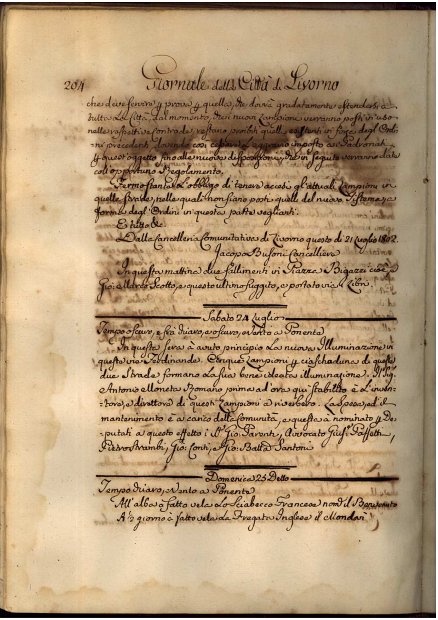 204 Giornale della Città di Livorno
che deve servire p prova p quella, che dovrà gradatamente estendersi a
tutta la Città dal momento, che i nuovi Lampioni verranno posti in uso
nelle rispettive Contrade, restano proibiti quelli esistenti in forza degl'Ordi
ni precedenti, dovendo così cessare l'aggravio imposto ai Padronati
p quest'oggetto fino alle nuove disposizioni, che in seguito verranno date
coll'opportuno Regolamento,
Fermo stante l'obbligo di tenere accesi gl'attuali Lampioni in
quelle strade, nelle quali non siano posti quelli del nuovo Sistema, a
forma degl'Ordini in questa parte veglianti:
E tutto &c
Dalla Cancelleria Comunitativa di Livorno questo dì 21 Luglio 1802.
Jacopo Busoni Cancelliere
In questa mattina due fallimenti in Piazza Bigazzi cioè
Gio: e Scotto, e quest'ultimo fuggito, e portato via i Libri.
Sabato 24 Luglio
Tempo oscuro, e frà chiaro, e oscuro, e vento a Ponente
In questa sera à avuto principio la nuova Illuminazione in
questa via Ferdinanda Cinque Lampioni, e ciascheduna di queste
due strade formano la sua bene ideata illuminazione; il Sigr
Antonio Moneta Romano prima ad ora qui stabilito è l'inven-
tore, e direttore di questi Lampioni a riverbero. La spesa, ed il
mantenimento è a carico della Comunità, e questa à nominato p De-
putati a questo effetto i SS. Gio: Parenti, Avvocato Giuse. Paffetti,
Pietro Strambi, Gio: Conti, e Gio: Batta Santoni
Domenica 25 Detto
Tempo chiaro, e Vento a Ponente
All'alba à fatto vela lo Sciabecco Francese nomto il Benvenuto
A ½ giorno à fatto vela la Fregata Inglese il